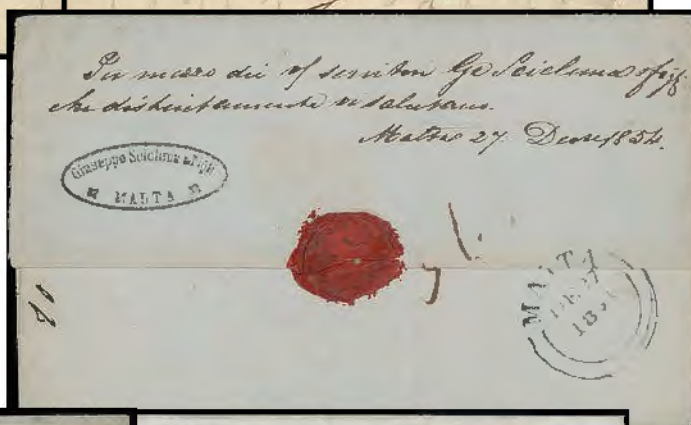 Per mezzo dei vss servitori Gs Scicluna e figli
che distintamente vi salutano.
Malta 27 Decre 1854.
Giuseppe Scicluna e Figli
MALTA
MALTA
DE 27
18